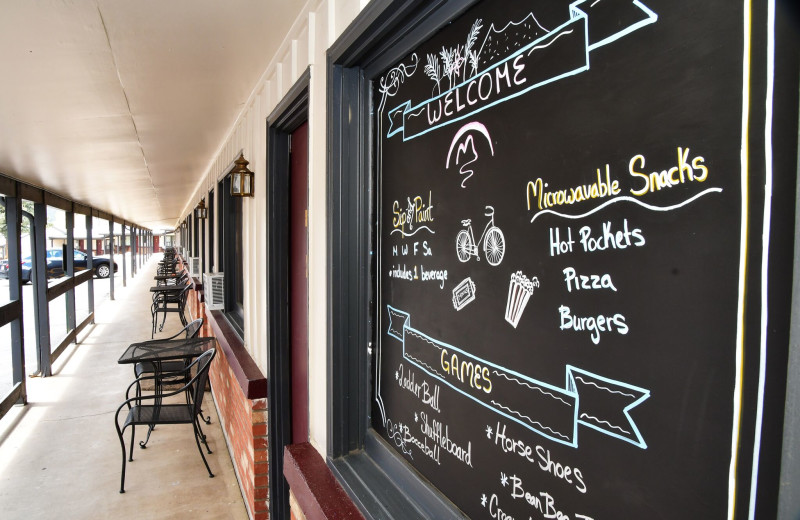 WELCOME
M
Sip & Paint
M W F Sa
*includes 1 beverage
Microwavable Snacks
Hot Pockets
Pizza
Burgers
GAMES
*Ladder Ball
*Shuffleboard
*Bocceball
*Horse Shoes
*Bean Bag